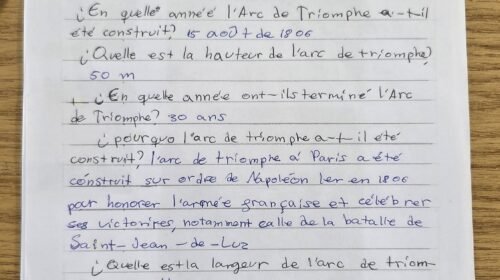 ¿En quelle année l'Arc de Triomphe a-t-il
été construit? 15 août de 1806
¿Quelle est la hauteur de l'arc de triomphe?
50 m
¿En quelle année ont-ils terminé l'Arc
de Triomphe? 30 ans
¿pourquo l'arc de triomphe a-t-il été
construit? l'arc de triomphe á Paris a été
cónstruit sur ordre de Napoléon Ier en 1806
pour honorer l'armée française et célébrer
ses victorires, notamment calle de la batalle de
Saint-Jean-de-Luz
¿Quelle est la largeur de l'arc de triom-